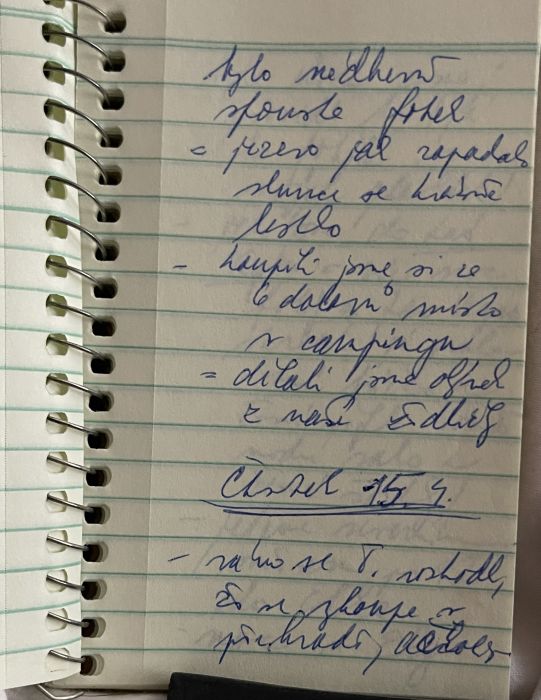 bylo nádherně
spousta fotek
= jezero jak zapadalo
slunce se krásně
lesklo
- koupili jsme si ze
6 dolarů místo
v campingu
= dělali jsme oheň
z naší
Čtvrtek 15. 4.
- ráno se T. rozhodl,
že se zkoupe v
přehradě, ačkoliv